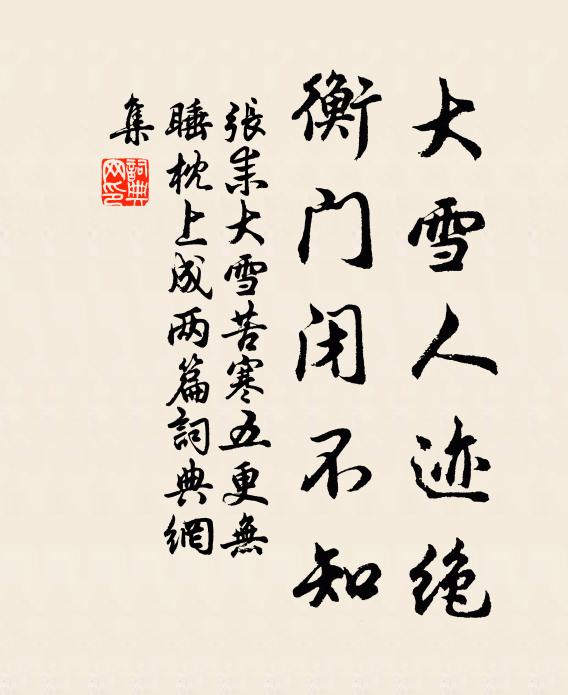 大雪人迹绝
衡门闭不知
張耒大雪苦寒五更無
睡枕上成两篇詞典網
集
詞典
网印